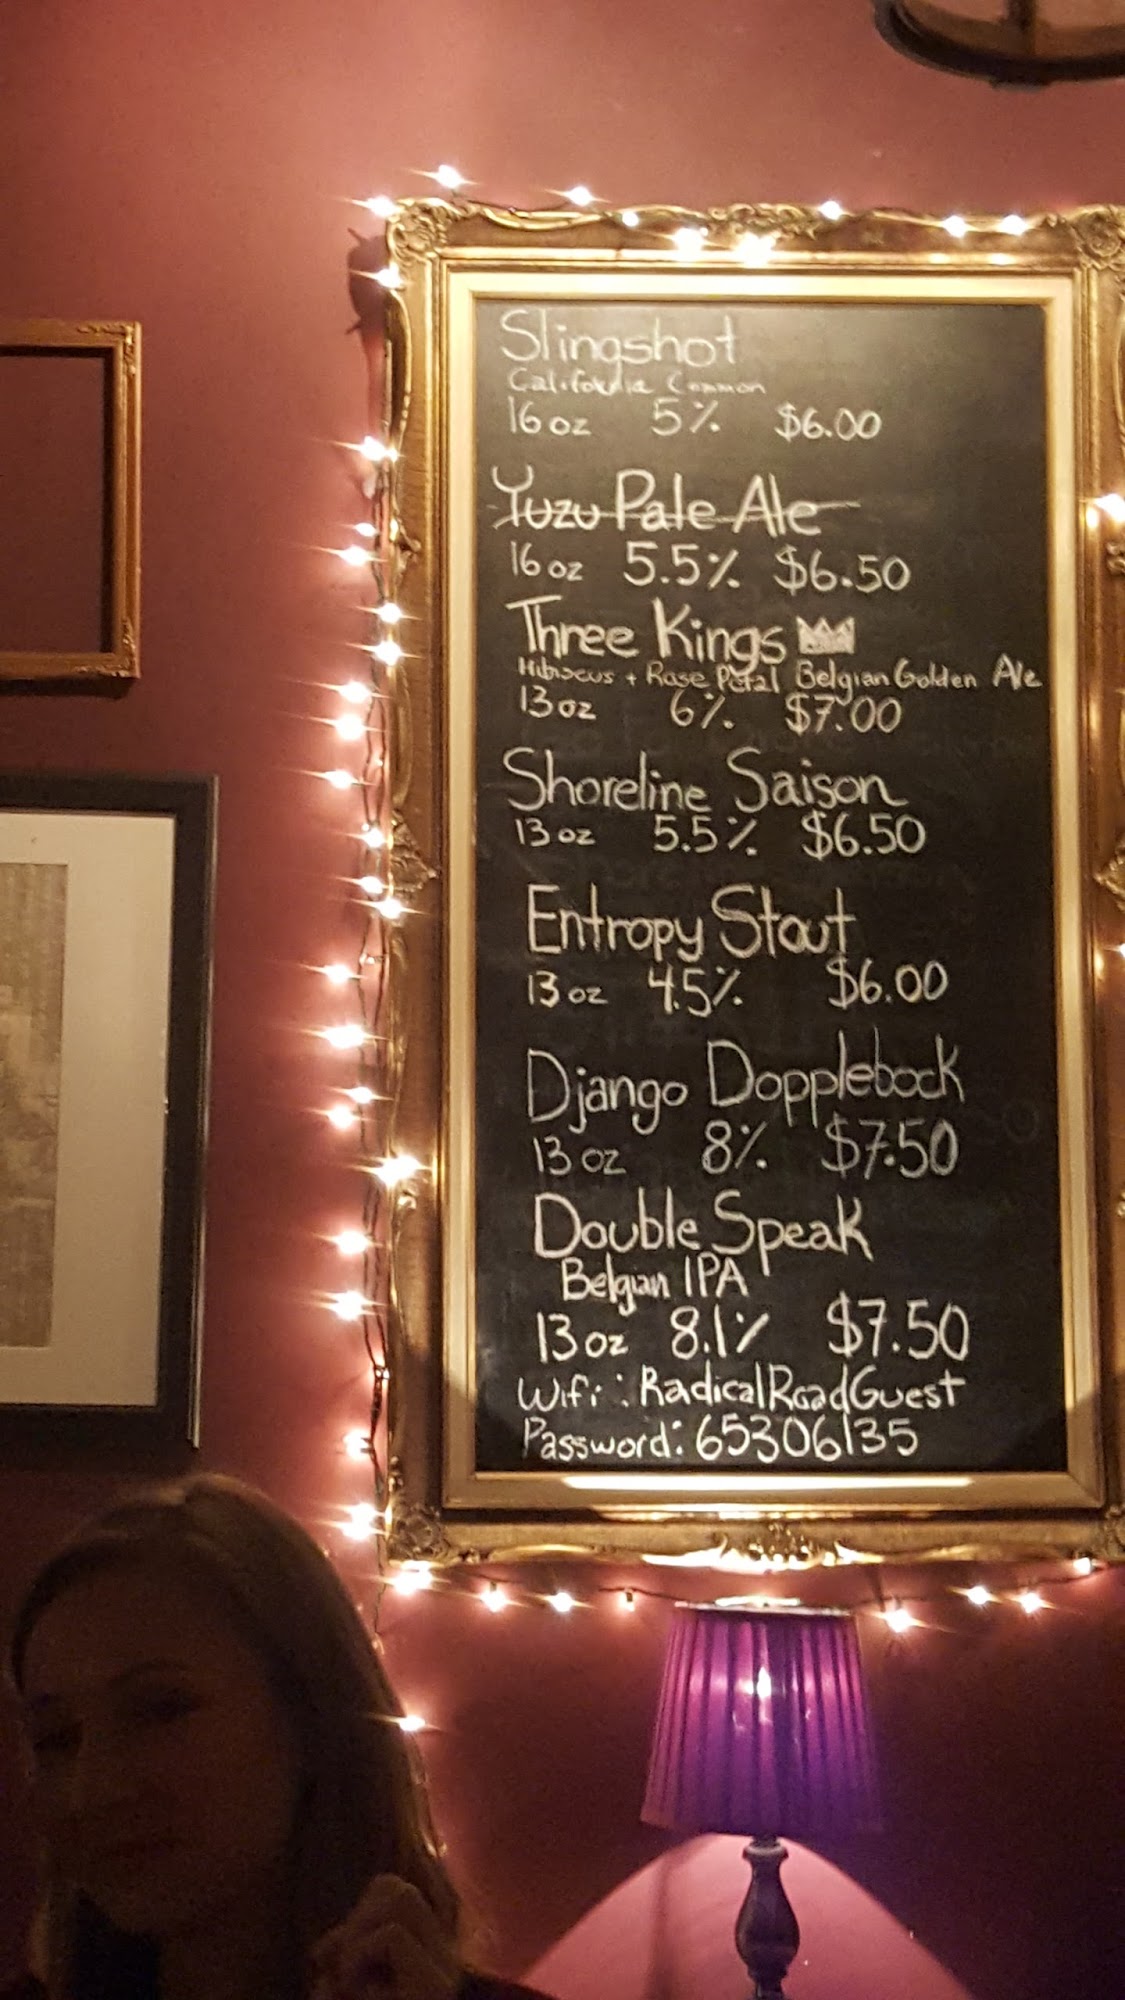 Slingshot
California Common
16 oz 5% $6.00
Yuzu Pale Ale
16 oz 5.5% $6.50
Three Kings
Hibiscus + Rose Petal Belgian Golden Ale
13 oz 6% $7.00
Shoreline Saison
13 oz 5.5% $6.50
Entropy Stout
13 oz 4.5% $6.00
Django Dopplebock
13 oz 8% $7.50
Double Speak
Belgian IPA
13 oz 8.1% $7.50
Wifi: RadicalRoadGuest
Password: 65306135